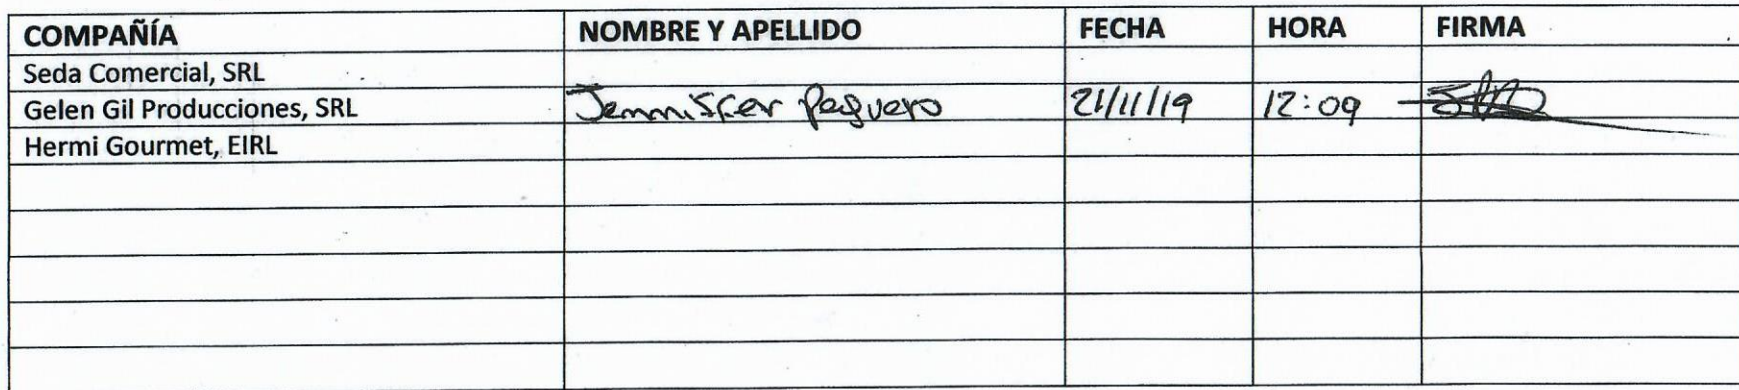 COMPAÑÍA NOMBRE Y APELLIDO FECHA HORA FIRMA
Seda Comercial, SRL
Gelen Gil Producciones, SRL Jennisfer Peguero 21/11/19 12:09
Hermi Gourmet, EIRL